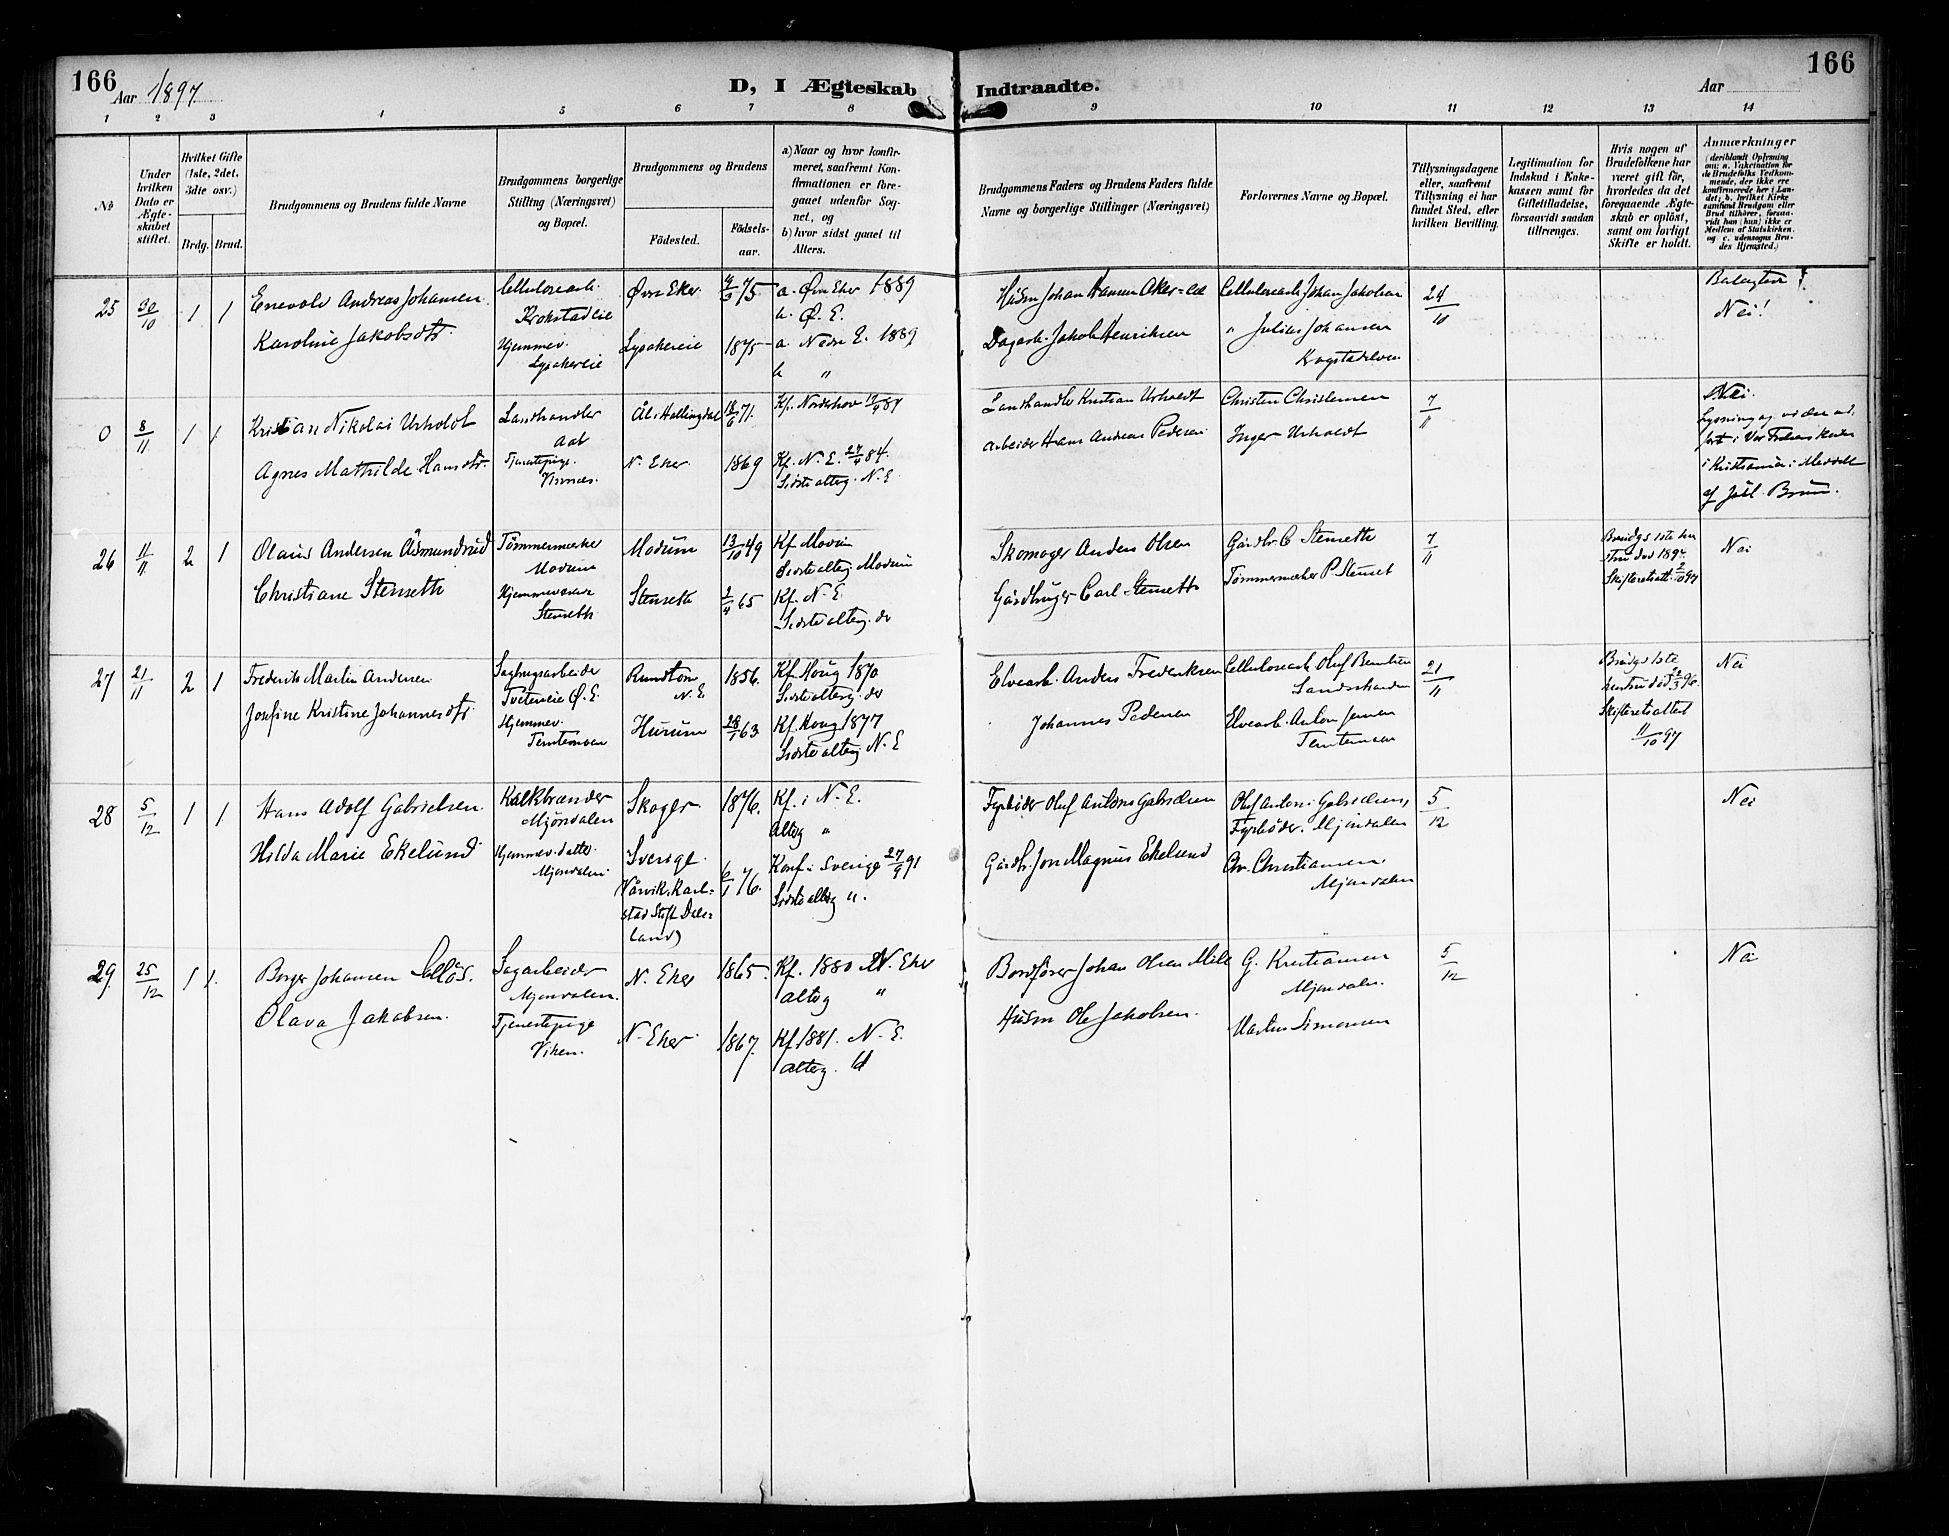 166
Aar 1897
D, I Ægteskab Indtraadte.
Aar
166
1 2 3 4 5 6 7 8 9 10 11 12 13 14
No
Under hvilken Dato er Ægteskabet stiftet.
Hvilket Gifte (1ste, 2det, 3die osv.)
Brdg. Brud.
Brudgommens og Brudens fulde Navne
Brudgommens borgerlige Stilling (Næringsvei) og Bopæl.
Brudgommens og Brudens
Fødested.
Fødselsaar.
a) Naar og hvor konfirmeret, saafremt Konfirmationen er foregaaet udenfor Sognet, og
b) hvor sidst gaaet til Alters.
Brudgommens Faders og Brudens Faders fulde Navne og borgerlige Stillinger (Næringsvei)
Forlovernes Navne og Bopæl.
Tillysningsdagene eller, saafremt Tillysning ei har fundet Sted, efter hvilken Bevilling.
Legitimation for Indskud i Enkekassen samt for Giftetilladelse, forsaavidt saadan tiltrænges.
Hvis nogen af Brudefolkene har været gift før, hvorledes da det foregaaende Ægteskab er opløst, samt om lovligt Skifte er holdt.
Anmærkninger
(deriblandt Oplysning om: a. Vakcination for de Brudefolks Vedkommende, der ikke ere konfirmerede her i Landet; b. hvilket Kirkesamfund Brudgom eller Brud tilhører, forsaavidt han (hun) ikke er Medlem af Statskirken, og c. udensogns Brudes Hjemsted.)
25 30/10 1 1 Enevold Andreas Johansen Cellulosearb. Krokstadeie Øvre Eker 75 a. Øvre Eker 1889 b. Ø. E. Husm Johan Hansen Aker Cellulosearb Johan Jakobsen 24/10 Nei!
Karoline Jakobsdtr. Hjemmev. Lysakereie Lysakereie 1875 a. Nedre E. 1889 b " Dagarb. Jakob Henriksen " Julius Johansen
0 8/11 1 1 Kristian Nikolai Urholdt Landhandler Aal Ål i Hallingdal 18/6 71. Kf. Norderhov Landhandler Kristian Urholdt Christen Christensen 7/11 Nei.
Agnes Mathilde Hansdtr. Tjenestepige. N. Eker. 1869 Kf. N. E. 27/4 84. Sidste alterg. N. E. Arbeider Hans Andreas Pedersen Inger Urholdt Lysning i Vor Frelsers Kirke i Kristiania
26 11/11 2 1 Olaus Andersen Åsmundrud Tømmermærker Modum Modum 13/10 49 Kf Modum Sidste alterg. Modum Skomager Anders Olsen Gårdbr. C Stenseth 7/11 Nei
Christiane Stenseth Hjemmeværende Stenseth Stenseth 65 Kf. N. E. Sidste alterg. do Gårdbruger Carl Stenseth Tømmermærker P. Stenset
27 21/11 2 1 Frederik Martin Andersen Sagbrugsarbeider Tvetereie Ø. E. N. E 1856. Kf. Houg 1870 Sidste alterg. do Elvearb. Anders Frederiksen Cellulosearb Oluf Berntsen 21/11 Skifteretsattest 11/10 97 Nei
Josefine Kristine Johannesdtr. Hjemmev. Hurum 28/1 63 Kf. Houg 1877 Sidste alterg. N. E Johannes Pedersen Elvearb. Anton Jensen
28 5/12 1 1 Hans Adolf Gabrielsen Kalkbrænder Mjøndalen Skoger 1876. Kf. i N. E. alterg " Fyrbøder Oluf Anton Gabrielsen Oluf Anton Gabrielsen, Fyrbøder. Mjøndalen 5/12 Nei
Hilda Marie Ekelund Hjemmev. datter. Mjøndalen Sverige. Karlstad Stift Dalsland) 6/1 76. Konf i Sverige 27/9 91 Sidste alterg ". Gårdbr. Jon Magnus Ekelund Chr. Christiansen. Mjøndalen
29 25/12 1 1. Borger Johansen Sagarbeider Mjøndalen. N. Eker 1865. Kf. 1880 N. Eker alterg " Johan Olsen Mile G. Kristiansen Mjøndalen. 5/12 Nei
Olava Jakobsen. Tjenestepige Viken. N. Eker 1867. Kf. 1881. N. E. alterg. Husm Ole Jakobsen. Martin Simonsen